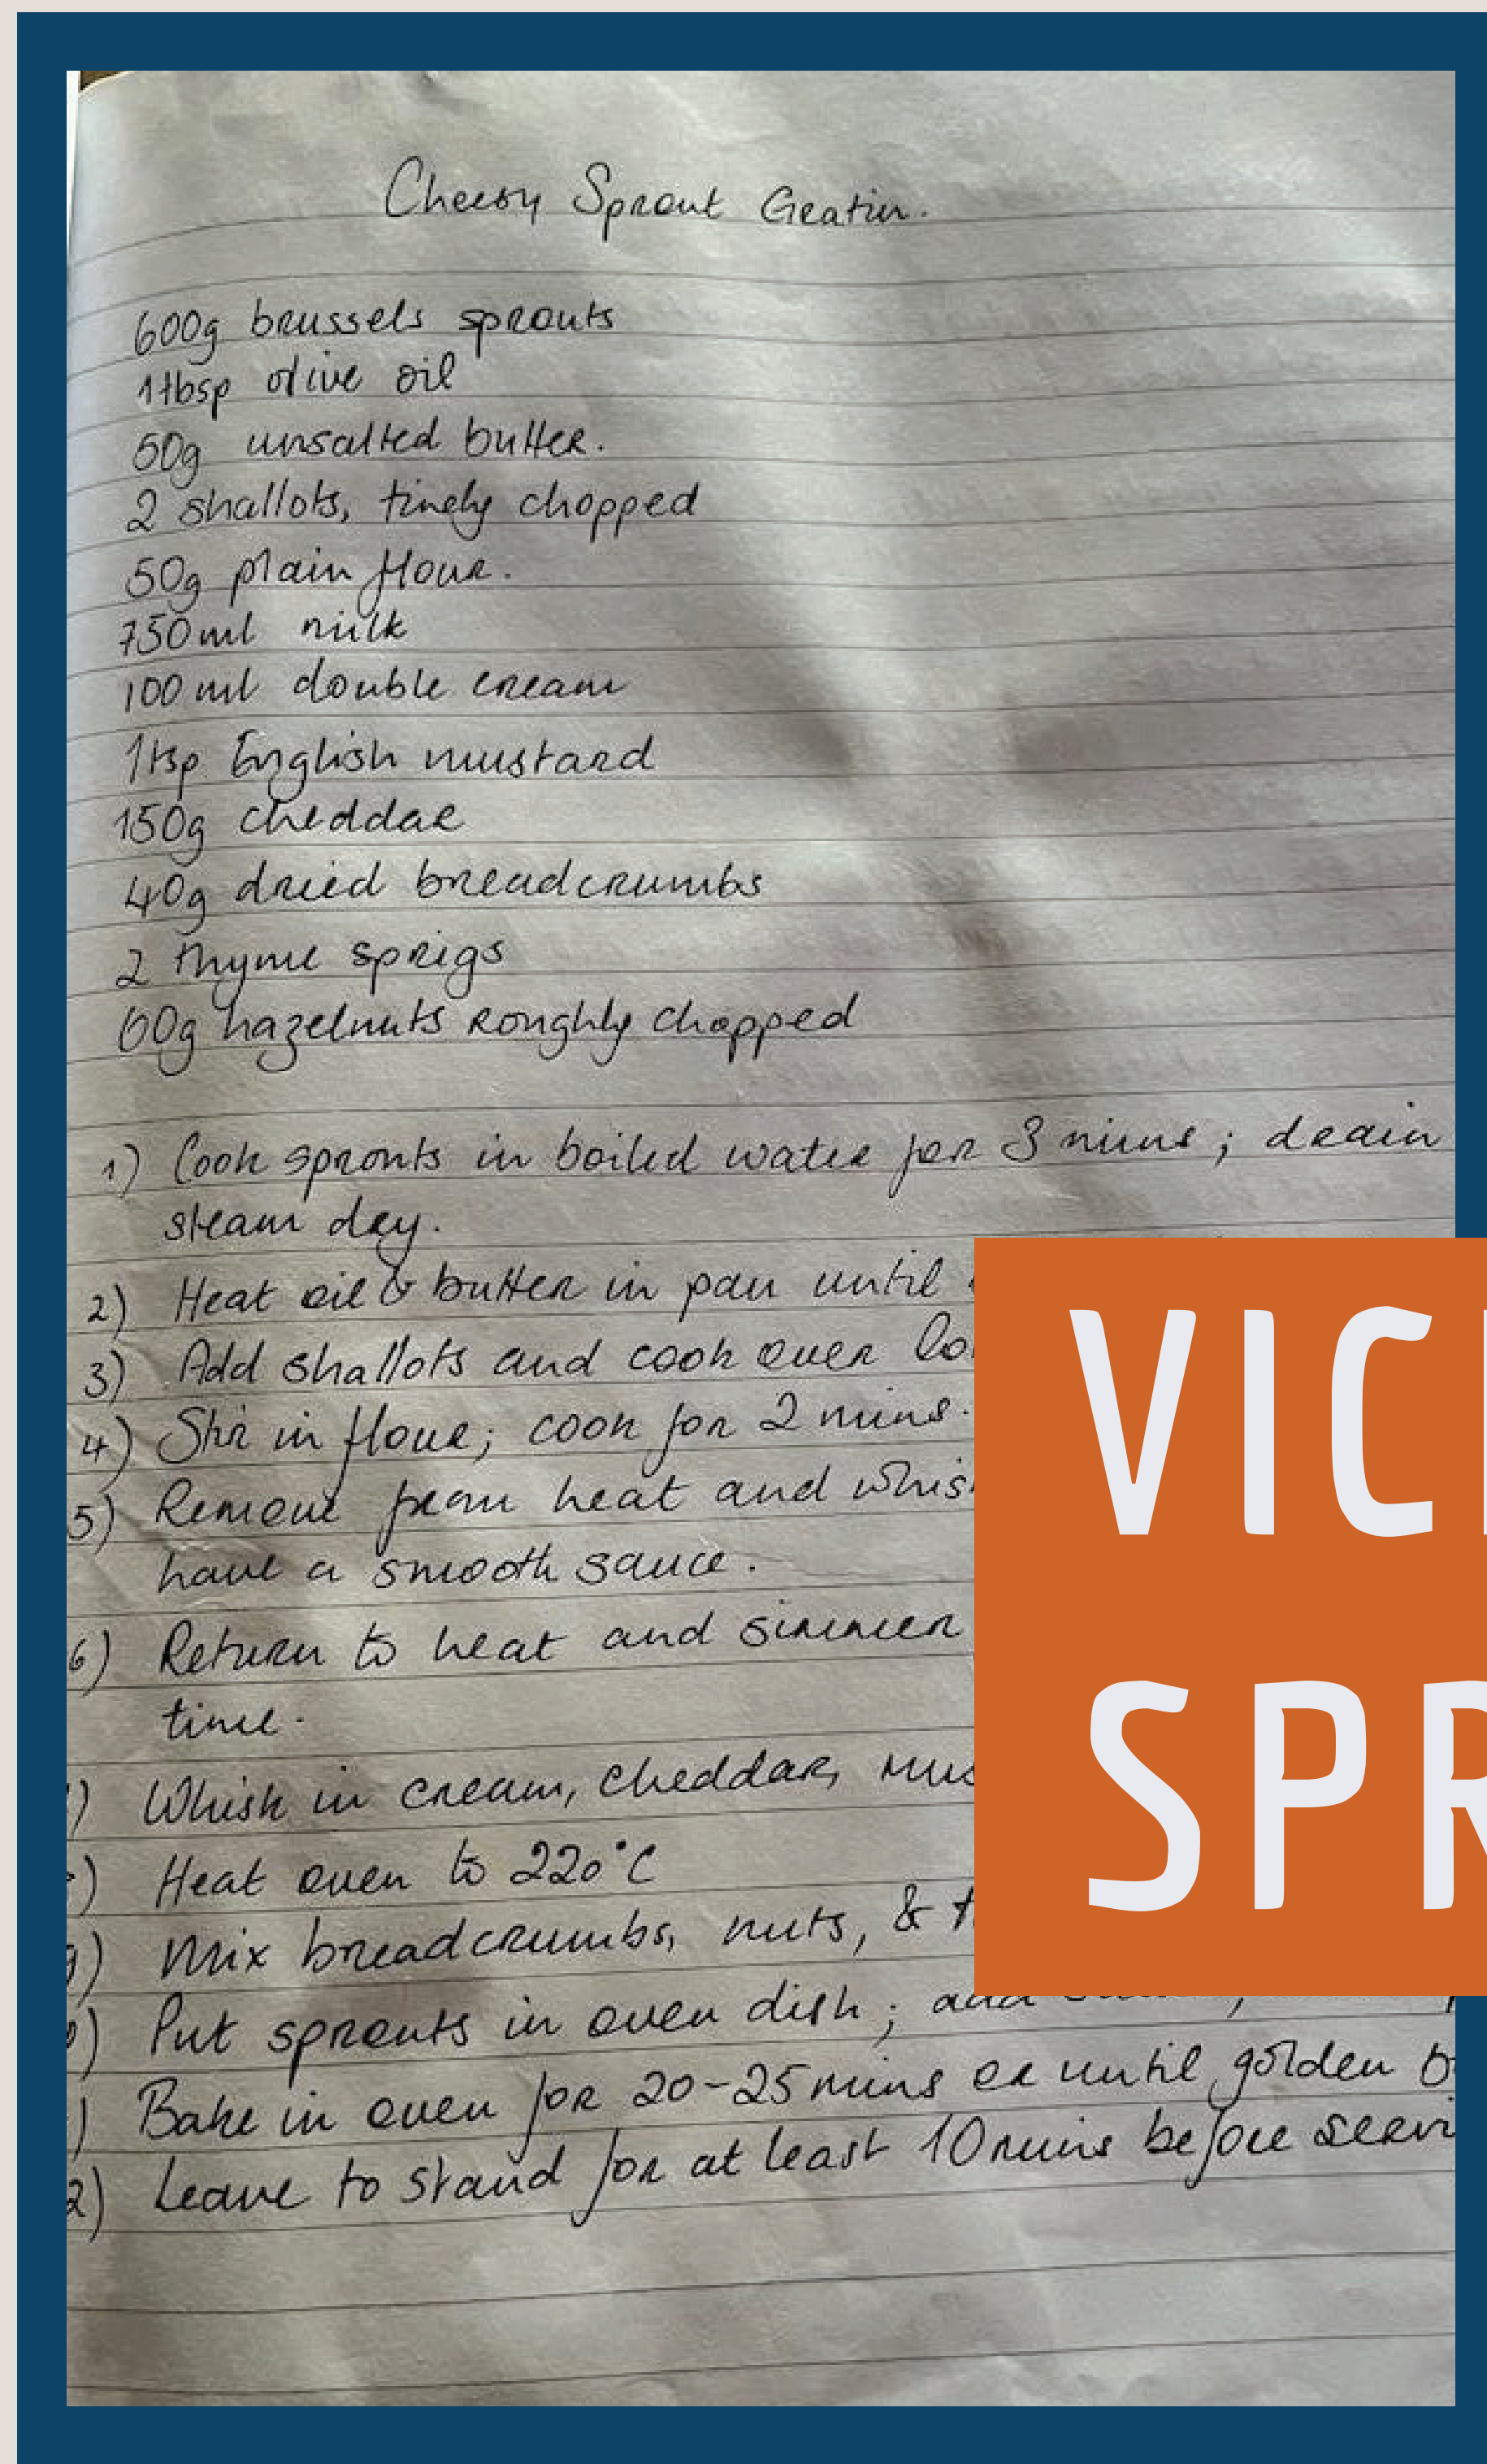 Cheesy Sprout Gratin.
600g brussels sprouts
1tbsp olive oil
50g unsalted butter.
2 shallots, finely chopped
50g plain flour.
750ml milk
100ml double cream
1tsp English mustard
150g cheddar
40g dried breadcrumbs
2 thyme sprigs
60g hazelnuts roughly chopped
1) Cook sprouts in boiled water for 3 mins; drain
steam dry.
2) Heat oil & butter in pan until
3) Add shallots and cook over lo
4) Stir in flour; cook for 2 mins.
5) Remove from heat and whis
have a smooth sauce.
6) Return to heat and simmer
time.
) Whisk in cream, cheddar, mus
) Heat oven to 220°C
9) Mix breadcrumbs, nuts, & t
0) Put sprouts in oven dish; add
) Bake in oven for 20-25 mins or until golden b
2) Leave to stand for at least 10 mins before servi
VIC
SPR